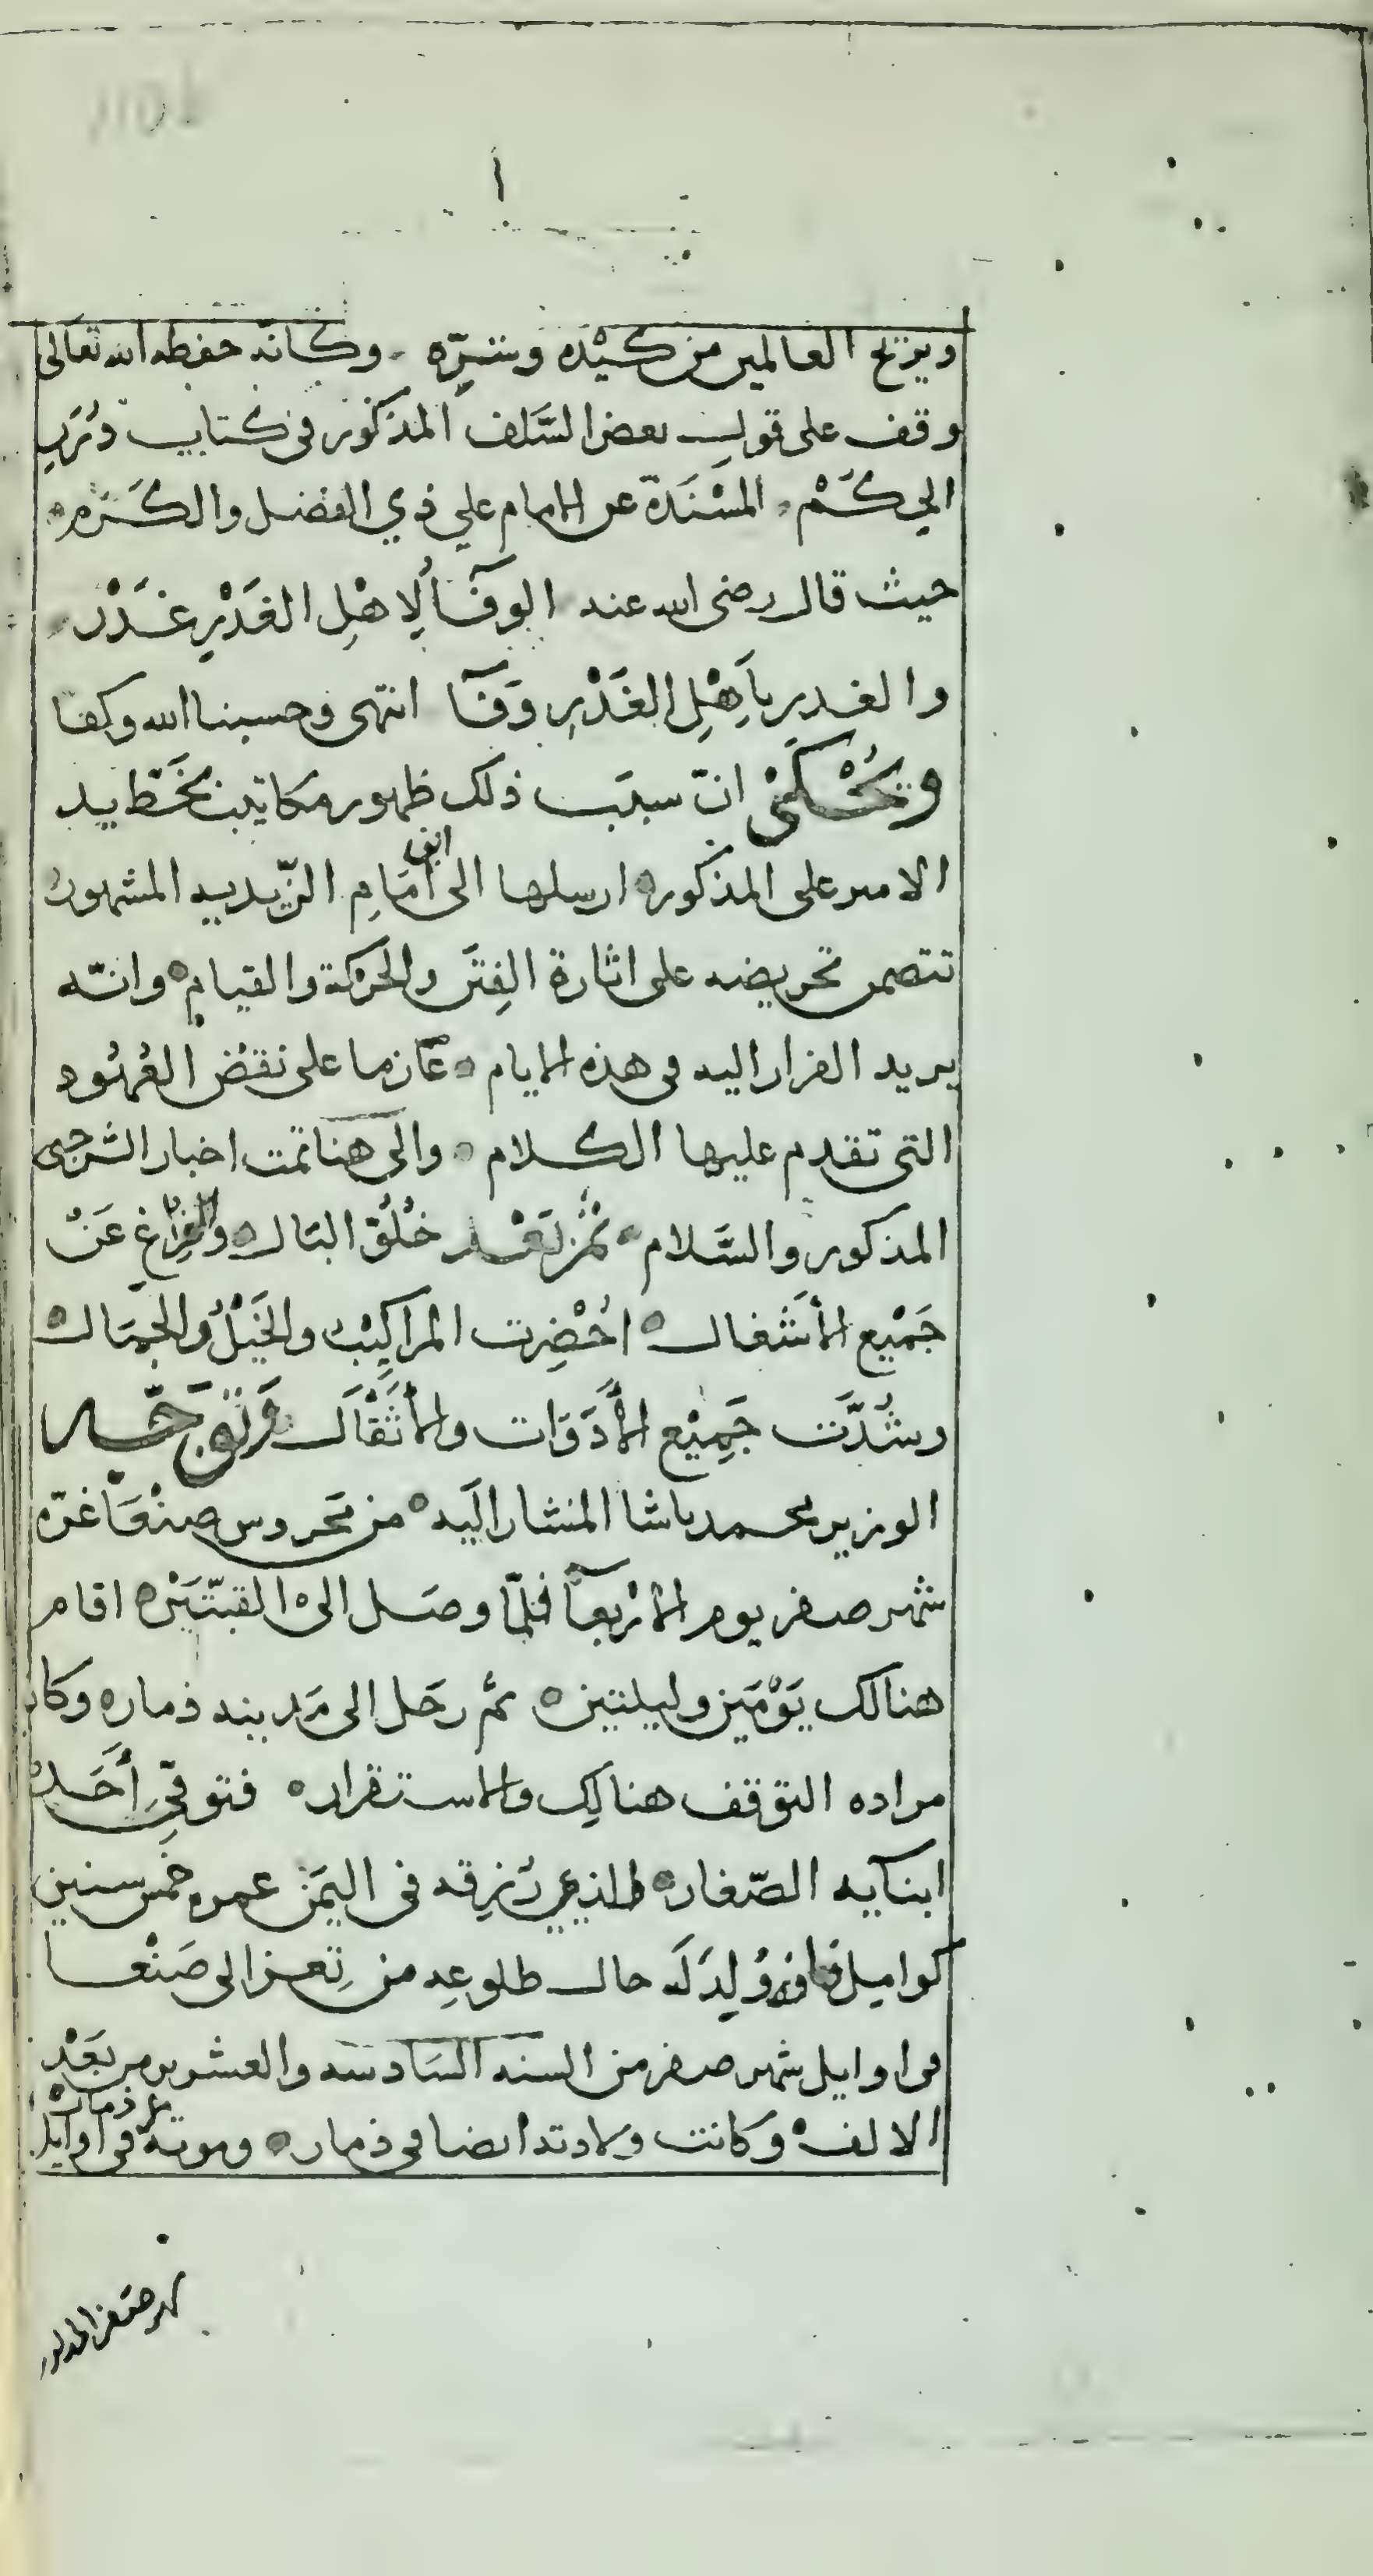 ا
ويزيح العالمين من كَيْدِه وشرِّه وكانّه حفظه الله تعالى
وقف على قول بعض السَّلف المذكور في كتاب دُرَر
الحِكَمْ المسْنَدَة عن الامام علي ذي الفضل والكَرَم
حيث قال رضى الله عنه الوفآُ لِاهْلِ الغَدْرِ غَدْرٌ
والغدر بأَهْلِ الغَدْرِ وَفَآ انتهى وحسبنا الله وكفا
ويُحْكَى انّ سبَبَ ذلك ظهور مكاتيب بخَطّ يد
الامير على المذكور ارسلها الى ابن امَامِ الزّيديه المشهور
تتضمن تحريضه على اثارة الفِتَن والحركة والقيام وانّه
يريد الفرار اليه في هذه الايام عَازما على نقضِ العُهُود
التى تقدم عليها الكلام والى هنا تمت اخبار الشرجى
المذكور والسَّلام ثم بَعْد خُلُوّ البَال والفراغِ عَنْ
جَمْيع الأشغال اُحْضِرت المراكِيْبُ والخَيْلُ والجِمَال
وشُدَّت جَمِيْع الأَدَوَات والأَثْقَال وتوجَّه
الوزير محمد باشا المشار اليه من محروس صنْعَا غرّة
شهر صفر يوم الاربعآ فلمّا وصَل الى القبّتَيْن اقام
هنالك يَوْمَين وليلتين ثم رحَل الى مَدينه ذمار وكان
مراده التوقف هنالِك والاستقرار فتوفِّي أَحَدُ
ابنآيه الصّغار الذي رُزِقه في اليَمَن عمره خمس سنين
كواميل وُلِدَ لَه حال طلوعِه من تِعز الى صَنْعا
في اوايل شهر صفر من السنه السَادسه والعشرين من بَعْد
الالف وكانت ولادته ايضا في ذمار وموته في ذمار في اوايل
شهر صفر المذكور